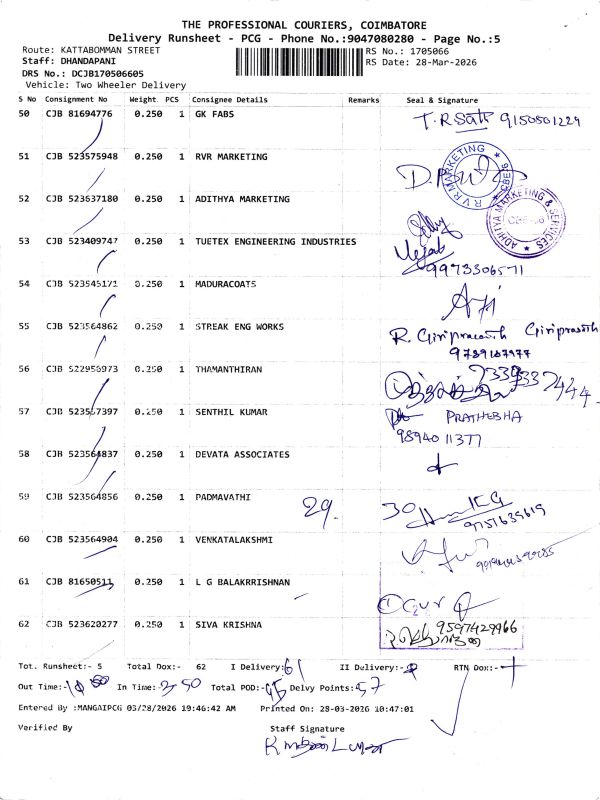 THE PROFESSIONAL COURIERS, COIMBATORE
Delivery Runsheet - PCG - Phone No.:9047080280 - Page No.:5
Route: KATTABOMMAN STREET
RS No.: 1705066
Staff: DHANDAPANI
RS Date: 28-Mar-2026
DRS No.: DCJB170506605
Vehicle: Two Wheeler Delivery
S No Consignment No Weight PCS Consignee Details Remarks Seal & Signature
50 CJB 81694776 0.250 1 GK FABS 9150501229
51 CJB 523575948 0.250 1 RVR MARKETING
RVR MARKETING
52 CJB 523637180 0.250 1 ADITHYA MARKETING
ADHITYA MARKETING & SERVICES
53 CJB 523409747 0.250 1 TUETEX ENGINEERING INDUSTRIES
9973306571
54 CJB 523545171 0.250 1 MADURACOATS
55 CJB 523564862 0.250 1 STREAK ENG WORKS R. Giriprasath Giriprasath
56 CJB 522956973 0.250 1 THAMANTHIRAN
57 CJB 523567397 0.250 1 SENTHIL KUMAR PRATHEBHA
98940 11377
58 CJB 523564837 0.250 1 DEVATA ASSOCIATES
59 CJB 523564856 0.250 1 PADMAVATHI 29. 30
9751639619
60 CJB 523564904 0.250 1 VENKATALAKSHMI
61 CJB 81650511 0.250 1 L G BALAKRRISHNAN
62 CJB 523620277 0.250 1 SIVA KRISHNA 9597429966
Tot. Runsheet:- 5 Total Dox:- 62 I Delivery: 61 II Delivery:- RTN Dox:-
Out Time:- In Time:- 3 50 Total POD:- Delvy Points: 57
Entered By :MANGAIPCG 03/28/2026 10:46:42 AM Printed On: 28-03-2026 10:47:01
Verified By Staff Signature